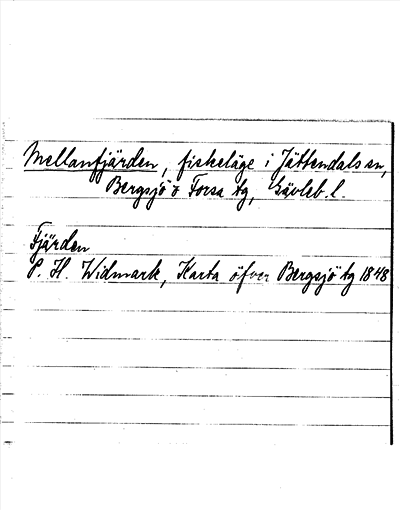 Mellanfjärden, fiskeläge i Jättendals sn,
Bergsjö o Forsa tg, Gävleb. l.
Fjärden
P. H. Widmark, Karta öfver Bergsjö tg 1848